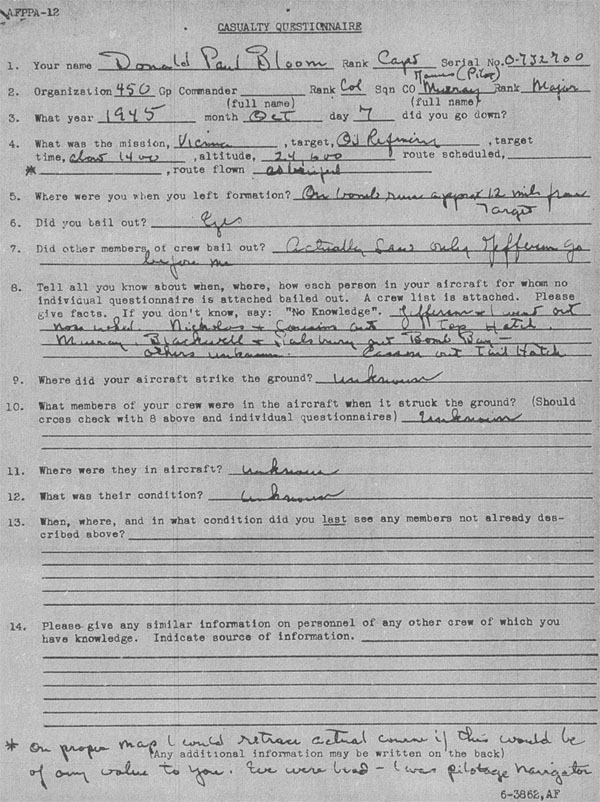 AFPPA-12
CASUALTY QUESTIONNAIRE
1. Your name Donald Paul Bloom Rank Capt Serial No. O-732700
James (Pilot)
2. Organization 450 Gp Commander Rank Col Sqn CO Murray Rank Major
(full name) (full name)
3. What year 1945 month Oct day 7 did you go down?
4. What was the mission, Vienna , target, Oil Refinery , target
time, about 1400 , altitude, 24,600 route scheduled,
* , route flown as briefed
5. Where were you when you left formation? On bomb run approx 12 miles from
Target
6. Did you bail out? Eyes
7. Did other members of crew bail out? Actually Saw only Jefferson go
before me
8. Tell all you know about when, where, how each person in your aircraft for whom no
individual questionnaire is attached bailed out. A crew list is attached. Please
give facts. If you don't know, say: "No Knowledge". Jefferson & I went out
nose wheel. Nicholas & out Top Hatch.
Murray, Blackwell & Salsbury out Bomb Bay —
others unknown. out Tail Hatch
9. Where did your aircraft strike the ground? unknown
10. What members of your crew were in the aircraft when it struck the ground? (Should
cross check with 8 above and individual questionnaires) Unknown
11. Where were they in aircraft? unknown
12. What was their condition? unknown
13. When, where, and in what condition did you last see any members not already des-
cribed above?
14. Please give any similar information on personnel of any other crew of which you
have knowledge. Indicate source of information.
* On proper map I could retrace actual course if this would be
(Any additional information may be written on the back)
of any value to you. We were lead – I was pilotage Navigator
6-3862, AF